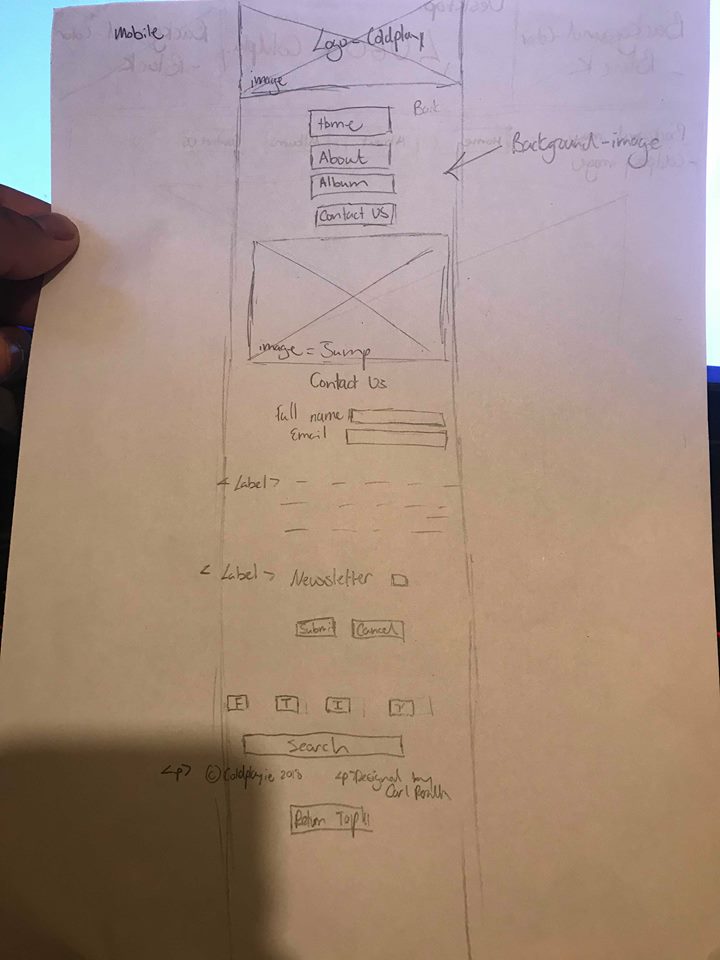 Mobile
Logo - Coldplay
image
Home
About
Background-image
Album
Contact Us
image = Jump
Contact Us
Full name
Email
<Label>
<Label> Newsletter
Submit Cancel
F T I Y
Search
<p> © Coldplay.ie 2018 <p> Designed by
Carl
Return Top